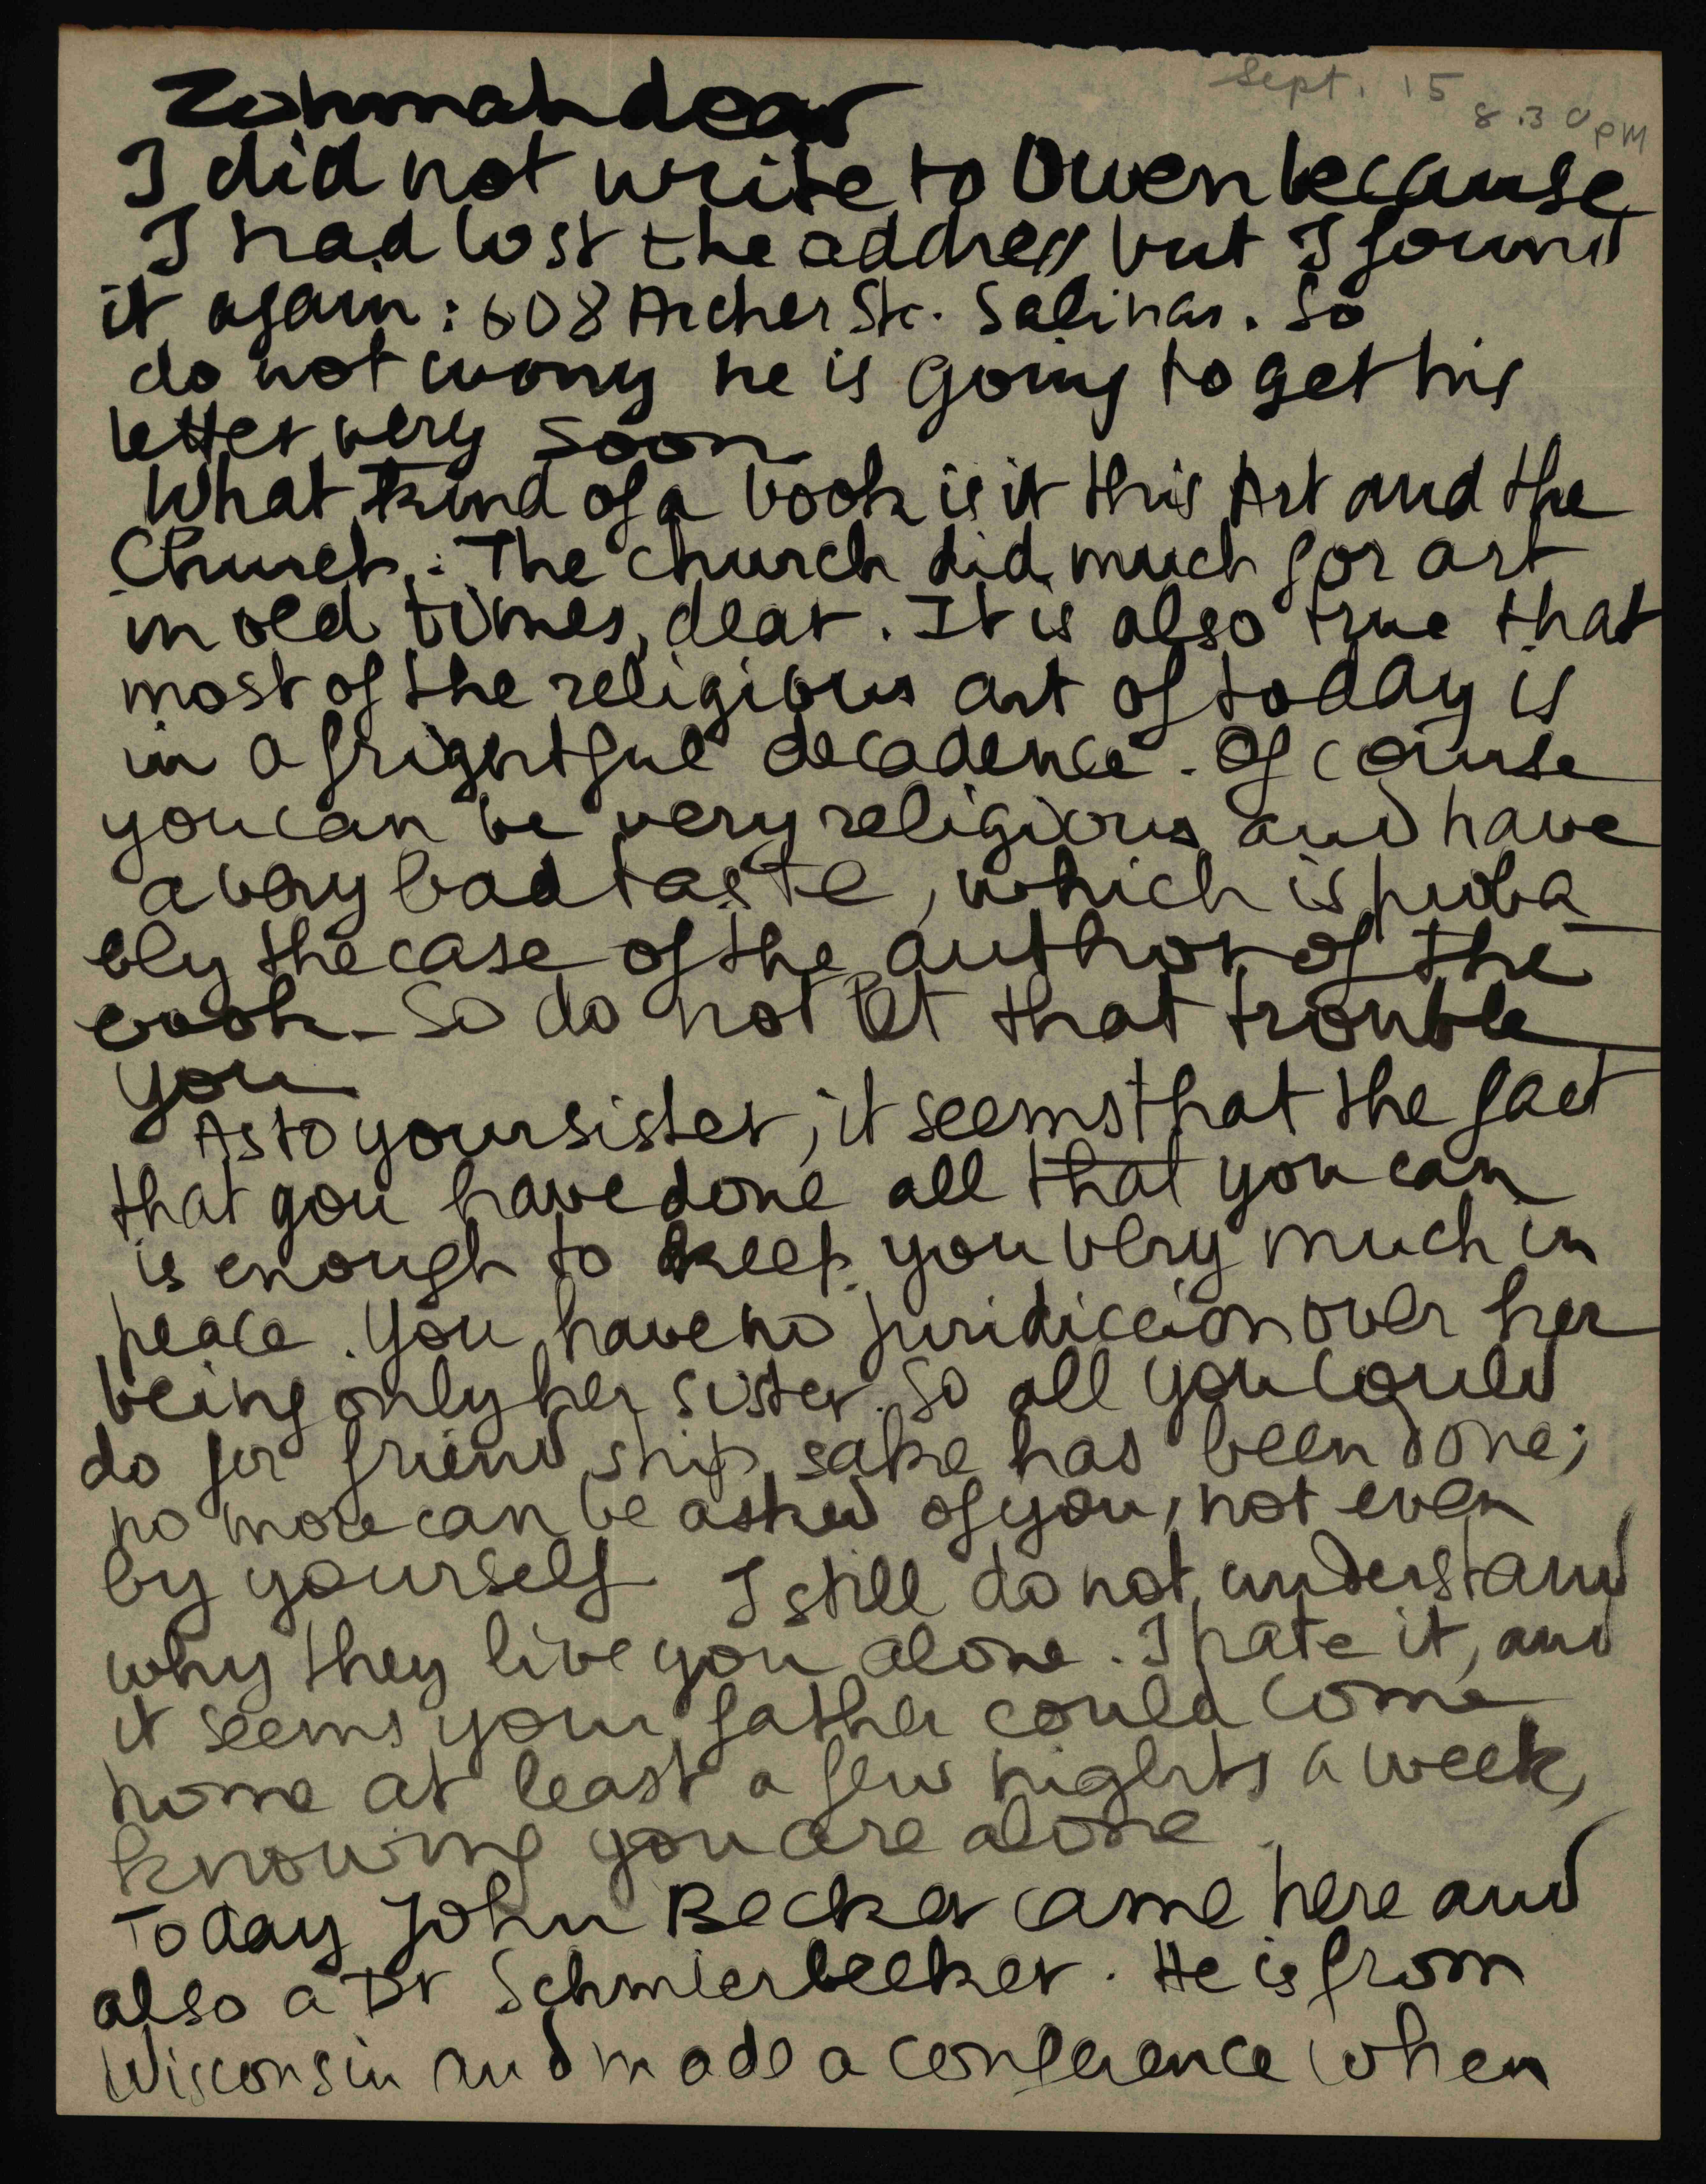 Sept. 15
8.30 PM
Zohmah dear
I did not write to Owen because
I had lost the address but I found
it again : 608 Archer Str. Salinas. So
do not worry he is going to get his
letter very soon
What kind of a book is it this Art and the
Church. : The church did much for art
in old times, dear. It is also true that
most of the religious art of today is
in a frightful decadence. Of course
you can be very religious and have
a very bad taste, which is proba_
bly the case of the author of the
book. So do not let that trouble
you
As to your sister, it seems that the fact
that you have done all that you can
is enough to keep you very much in
peace. You have no juridiccion over her
being only her sister. So all you could
do for friend ship sake has been done;
no more can be asked of you, not even
by yourself I still do not understand
why they live you alone. I hate it, and
it seems your father could come
home at least a few nights a week,
knowing you are alone.
Today John Becker came here and
also a Dr Schmierbeeker. He is from
Wisconsin and made a conference when